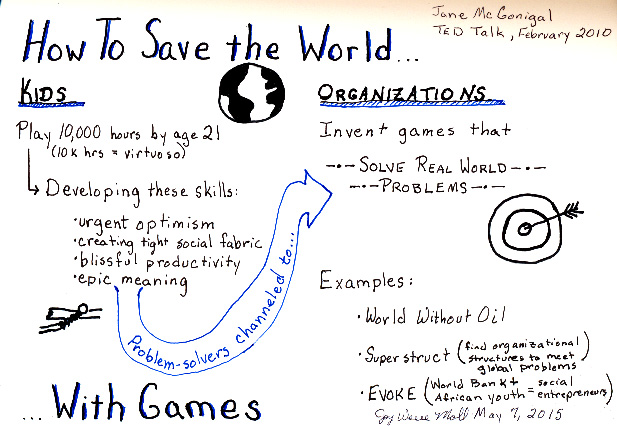 Jane McGonigal
TED Talk, February 2010
How To Save the World...
KIDS
Play 10,000 hours by age 21
(10k hrs = virtuoso)
Developing these skills:
•urgent optimism
•creating tight social fabric
•blissful productivity
•epic meaning
Problem-solvers channeled to...
ORGANIZATIONS
Invent games that
SOLVE REAL WORLD
PROBLEMS
Examples:
•World Without Oil
•Superstruct (find organizational
structures to meet
global problems)
•EVOKE (World Bank +
African youth = social
entrepreneurs)
...With Games
May 7, 2015